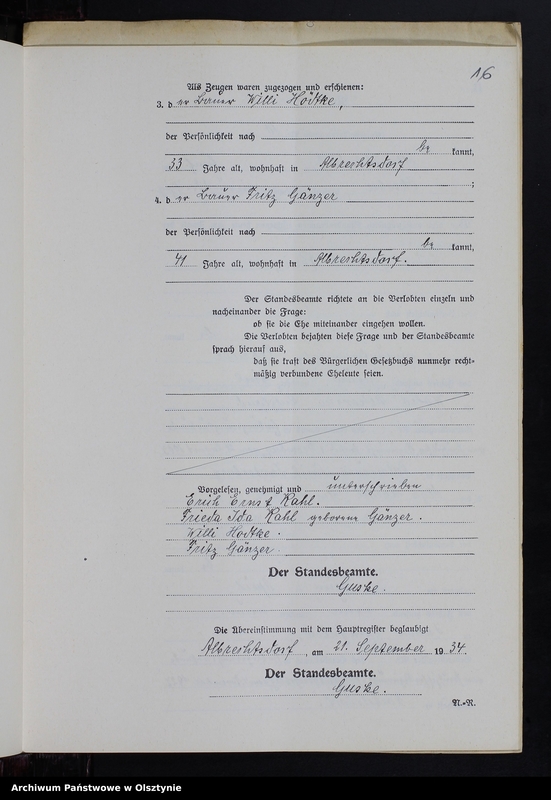 16
Als Zeugen waren zugezogen und erschienen:
3. d er Bauer Willi Hödtke,
der Persönlichkeit nach
be kannt,
33 Jahre alt, wohnhaft in Albrechtsdorf
;
4. d er Bauer Fritz Gänzer
der Persönlichkeit nach
be kannt,
41 Jahre alt, wohnhaft in Albrechtsdorf.
Der Standesbeamte richtete an die Verlobten einzeln und
nacheinander die Frage:
ob sie die Ehe miteinander eingehen wollen.
Die Verlobten bejahten diese Frage und der Standesbeamte
sprach hierauf aus,
daß sie kraft des Bürgerlichen Gesetzbuchs nunmehr recht-
mäßig verbundene Eheleute seien.
Vorgelesen, genehmigt und unterschrieben
Erich Ernst Kahl.
Frieda Ida Kahl geborene Gänzer.
Willi Hödtke.
Fritz Gänzer.
Der Standesbeamte.
Guske.
Die Übereinstimmung mit dem Hauptregister beglaubigt
Albrechtsdorf, am 21. September 1934.
Der Standesbeamte.
Guske.
N.-R.
Archiwum Państwowe w Olsztynie